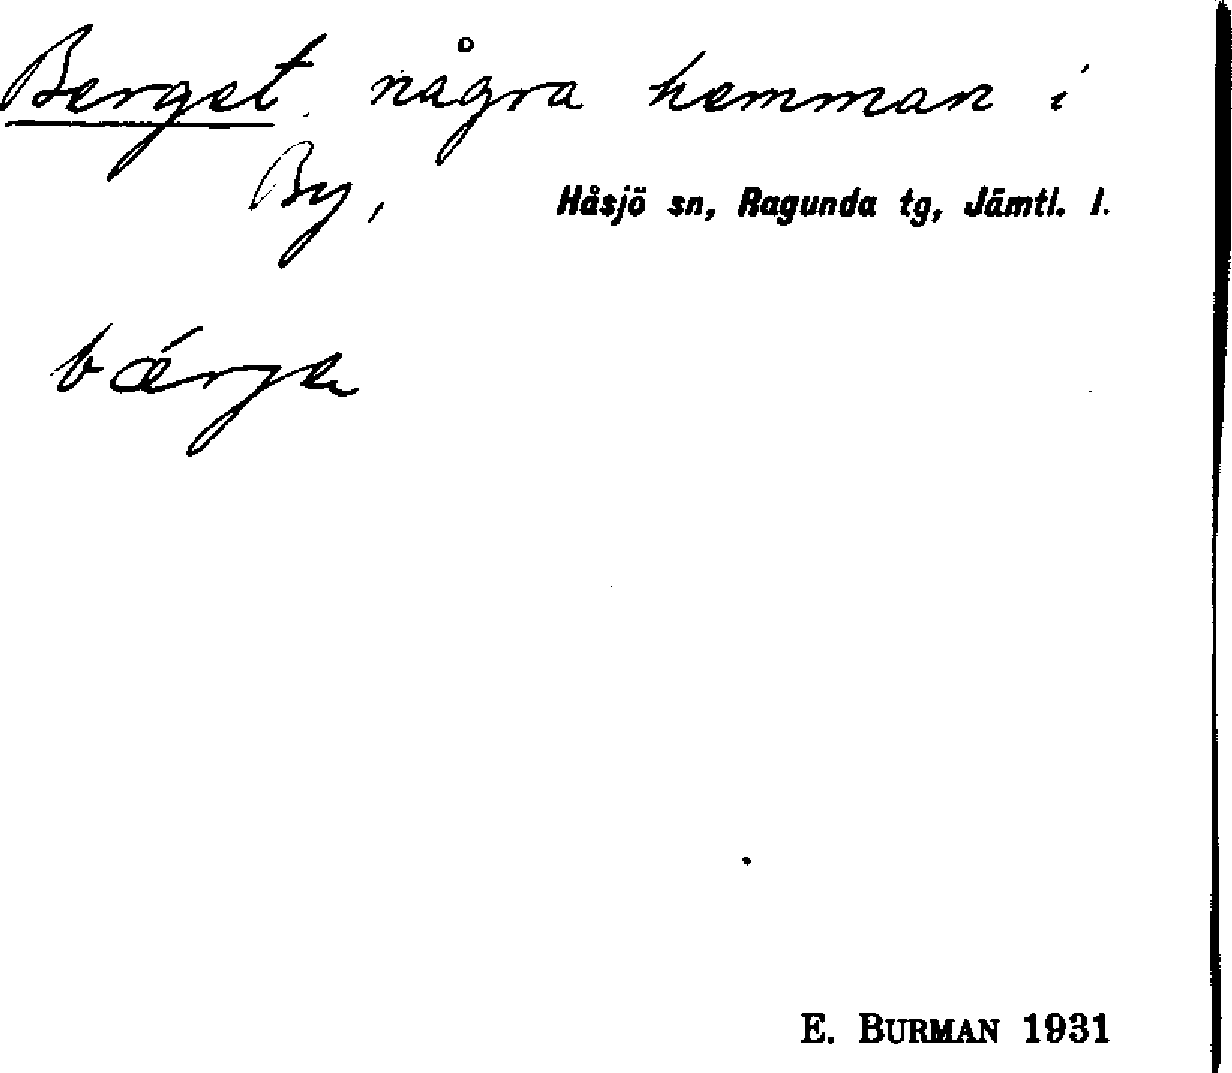 Berget. några hemman i
By, Håsjö sn, Ragunda tg, Jämtl. l.
bǽrge
E. BURMAN 1931